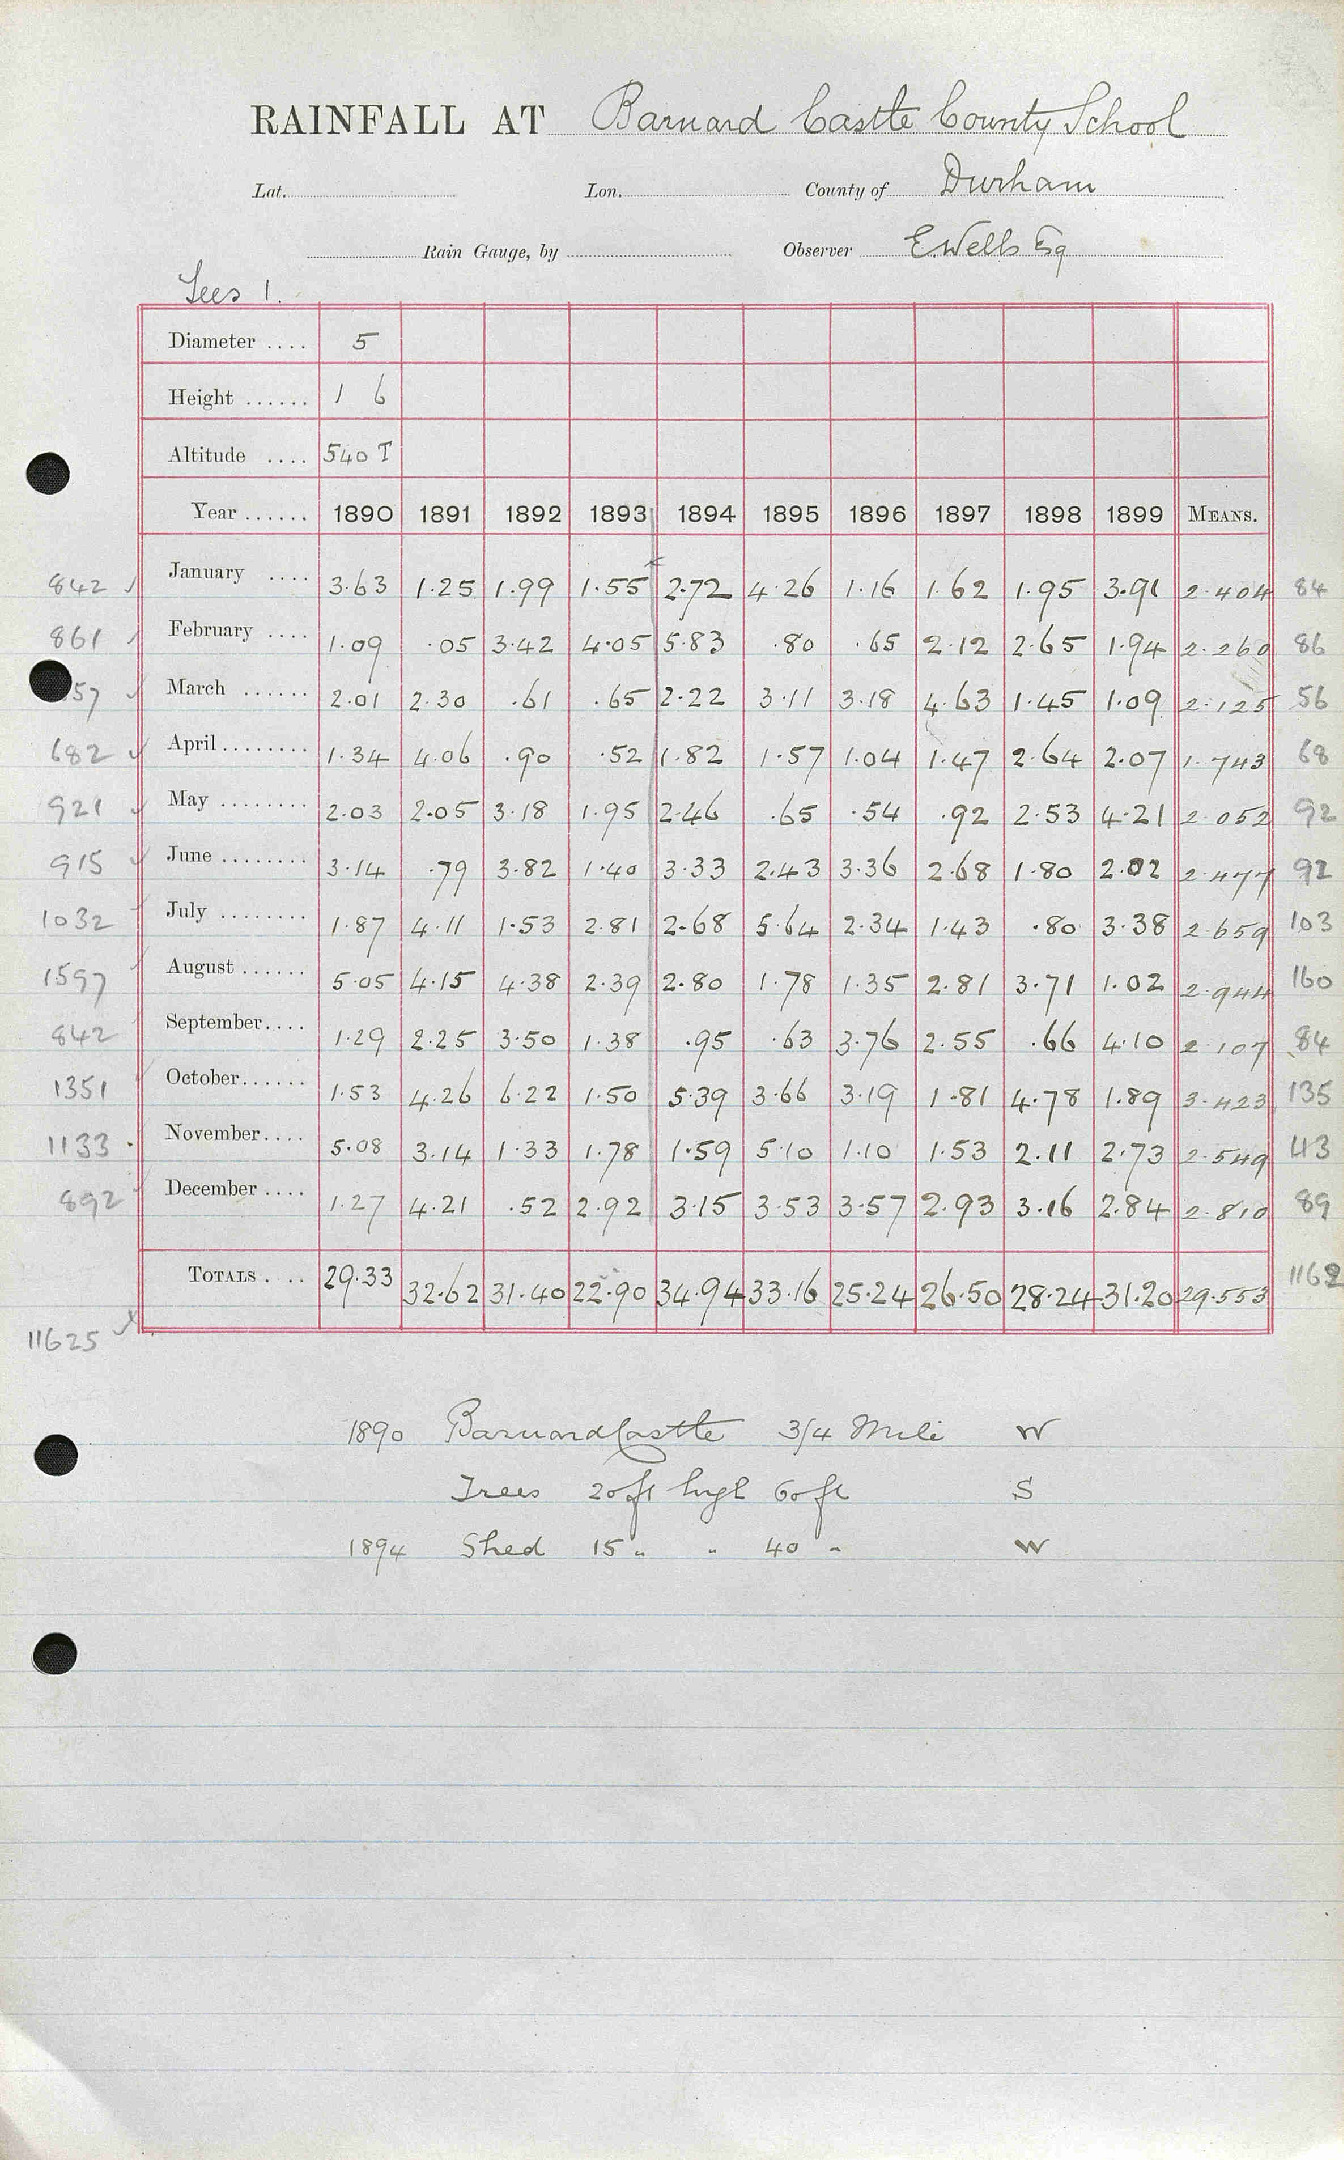 RAINFALL AT Barnard Castle County School
Lat. Lon. County of Durham
Rain Gauge, by Observer E. Wells Esq
Tees 1.
Diameter .... 5
Height ...... 1 6
Altitude .... 540 T
Year ...... 1890 1891 1892 1893 1894 1895 1896 1897 1898 1899 MEANS.
842 January .... 3.63 1.25 1.99 1.55 2.72 4.26 1.16 1.62 1.95 3.91 2.404 84
861 February .... 1.09 .05 3.42 4.05 5.83 .80 .65 2.12 2.65 1.94 2.260 86
57 March ...... 2.01 2.30 .61 .65 2.22 3.11 3.18 4.63 1.45 1.09 2.125 56
682 April ........ 1.34 4.06 .90 .52 1.82 1.57 1.04 1.47 2.64 2.07 1.743 68
921 May ........ 2.03 2.05 3.18 1.95 2.46 .65 .54 .92 2.53 4.21 2.052 92
915 June ........ 3.14 .79 3.82 1.40 3.33 2.43 3.36 2.68 1.80 2.02 2.477 92
1032 July ........ 1.87 4.11 1.53 2.81 2.68 5.64 2.34 1.43 .80 3.38 2.659 103
1597 August ...... 5.05 4.15 4.38 2.39 2.80 1.78 1.35 2.81 3.71 1.02 2.944 160
842 September.... 1.29 2.25 3.50 1.38 .95 .63 3.76 2.55 .66 4.10 2.107 84
1351 October...... 1.53 4.26 6.22 1.50 5.39 3.66 3.19 1.81 4.78 1.89 3.423 135
1133 November.... 5.08 3.14 1.33 1.78 1.59 5.10 1.10 1.53 2.11 2.73 2.549 113
892 December .... 1.27 4.21 .52 2.92 3.15 3.53 3.57 2.93 3.16 2.84 2.810 89
TOTALS .... 29.33 32.62 31.40 22.90 34.94 33.16 25.24 26.50 28.24 31.20 29.553 1162
11625
1890 Barnard Castle 3/4 Mile W
Trees 20 ft high 60 ft S
1894 Shed 15 " " 40 " W